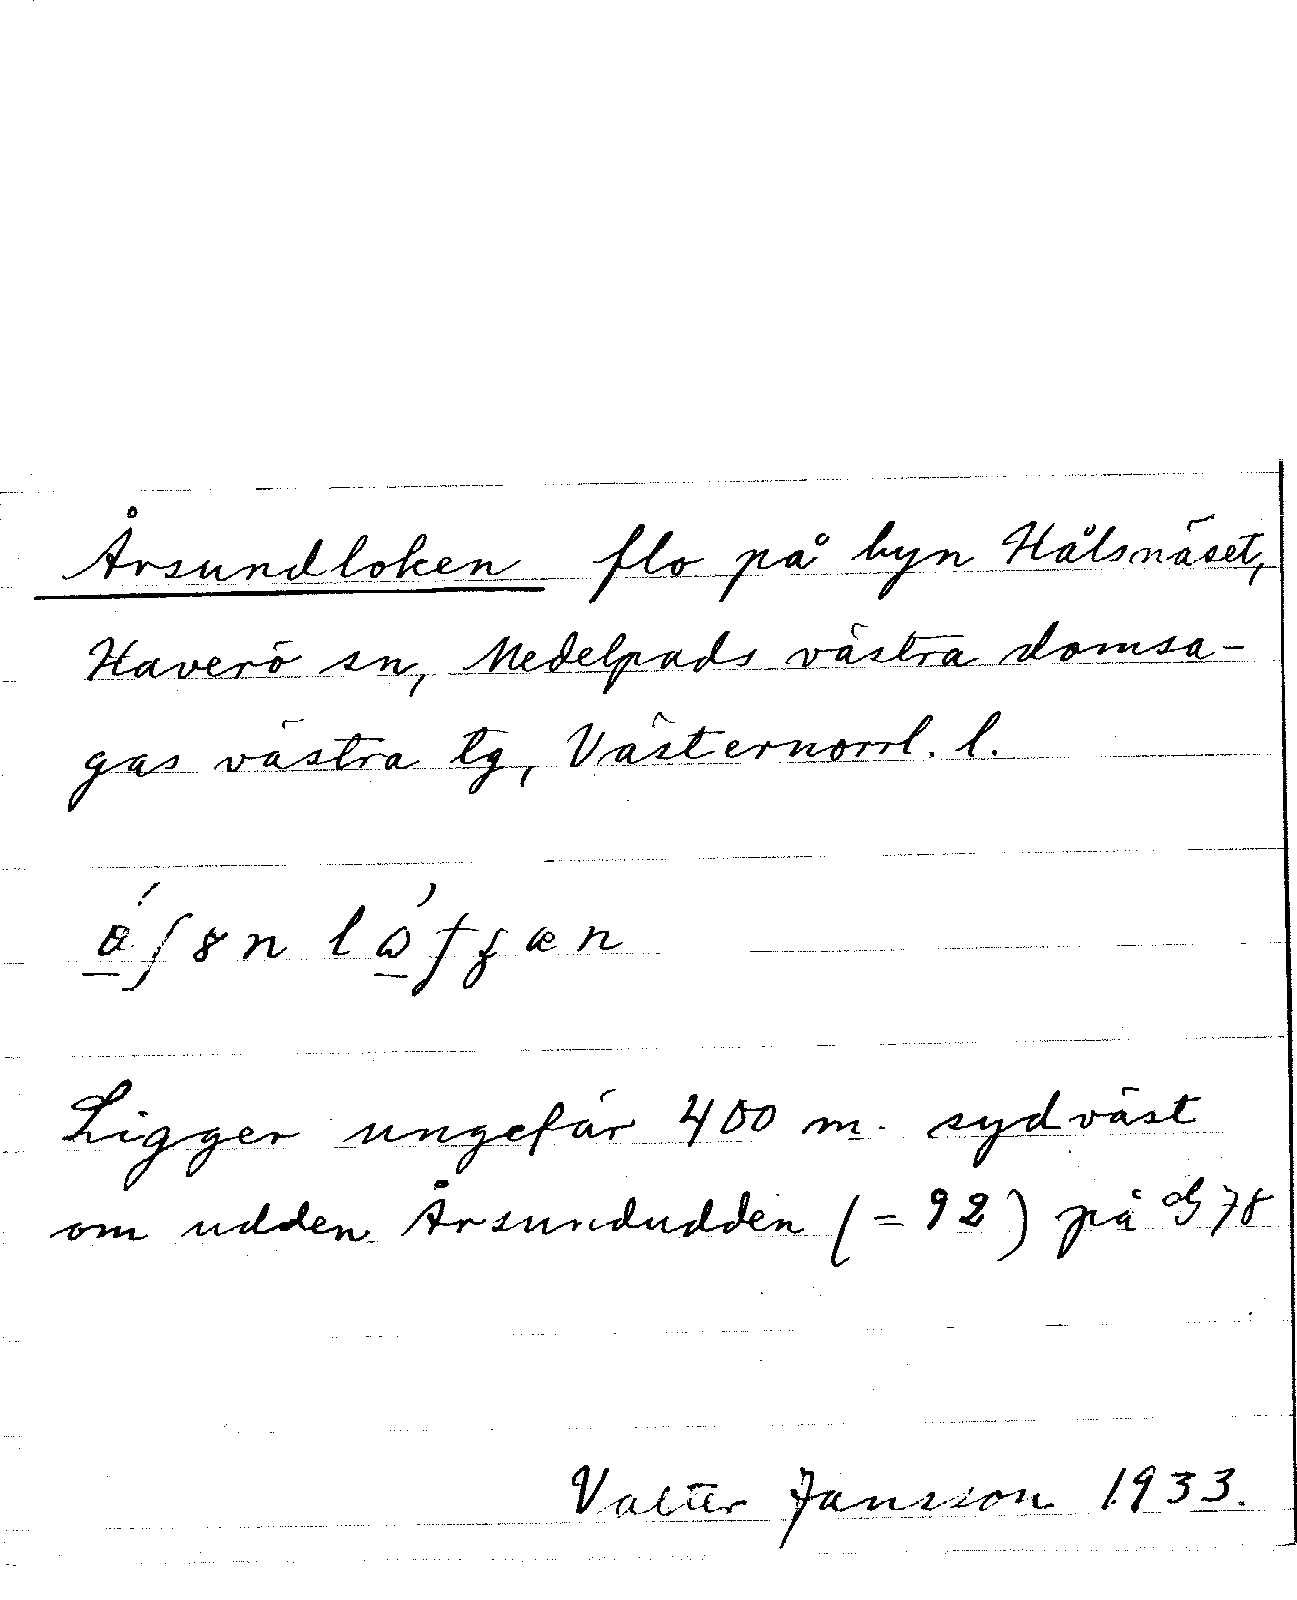 Årsundloken flo på byn Hålsnäset,
Haverö sn, Medelpads västra domsa-
gas västra tg, Västernorrl. l.
Ligger ungefär 400 m. sydväst
om udden Årsundudden (= 92) på G 78
Valter Jansson 1933.